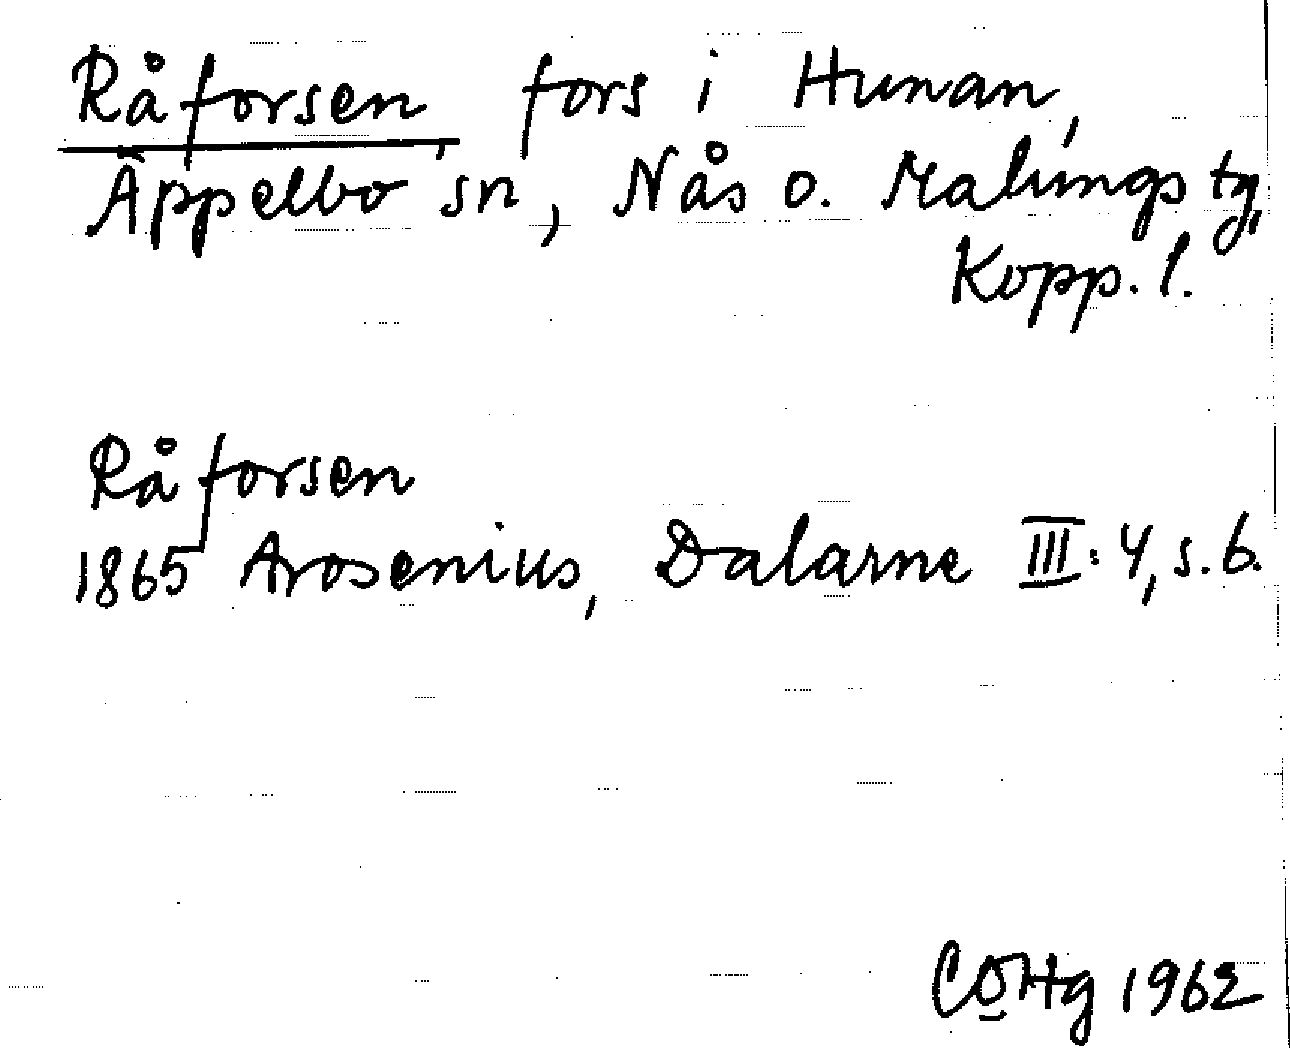 Råforsen fors i Hunan,
Äppelbo sn, Nås o. Malungs tg,
Kopp. l.
Råforsen
1865 Arosenius, Dalarne III: 4, s. 6.
COHg 1962